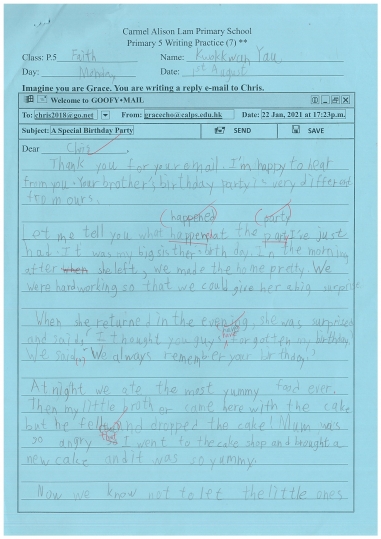 Carmel Alison Lam Primary School
Primary 5 Writing Practice (7) **
Class: P.5 Faith Name: Kwokkwan Yau
Day: Monday Date: 1st August
Imagine you are Grace. You are writing a reply e-mail to Chris.
Welcome to GOOFY•MAIL
To: chris2018@go.net From: graceeho@calps.edu.hk Date: 22 Jan, 2021 at 17:23p.m.
Subject: A Special Birthday Party SEND SAVE
Dear Chris,
Thank you for your email. I'm happy to hear
from you. Your brother's birthday party is very different
from ours.
(happened) (party)
Let me tell you what happen at the I've just
had. It was my big sister's day. In the morning
after when she left, we made the home pretty. We
were hardworking so that we could give her a big surprise
When she returned in the evening, she was surprised
and said, "I thought you guys forgotten my birthday"
We said, "We always remember your birthday".
At night we ate the most yummy food ever.
Then my little broth er came here with the cake
but he fell and dropped the cake! Mum was
so angry I went to the cake shop and brought a
new cake and it was so yummy.
Now we know not to let the little ones